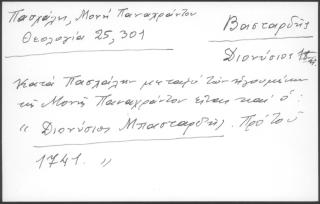 Πασχάλη, Μονή Παναχράντου
Θεολογία 25, 301
Βασταρδῆς
Διονύσιος
Κατά Πασχάλην μεταξύ τῶν ἡγουμένων
τῆς Μονῆς Παναχράντου εἶναι καί ὁ:
"Διονύσιος Μπασταρδῆς. Πρό τοῦ
1741."